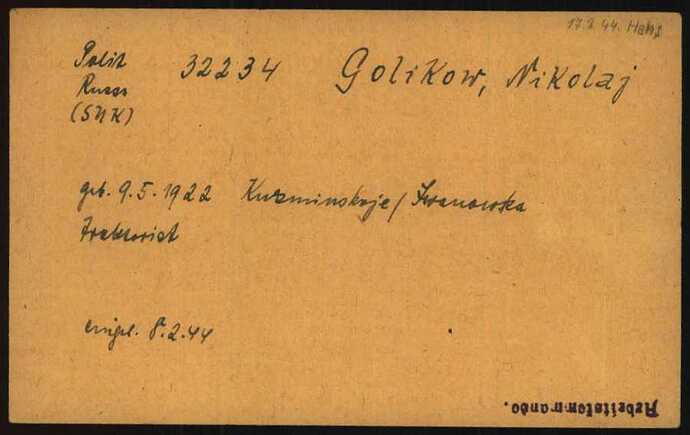 17.2.44. Hans
Polit 32234 Golikow, Nikolaj
Russe
(SUK)
geb. 9.5.1922 Kusminskoje/Iwanowska
Traktorist
eingel. 8.2.44
Arbeitskommando.